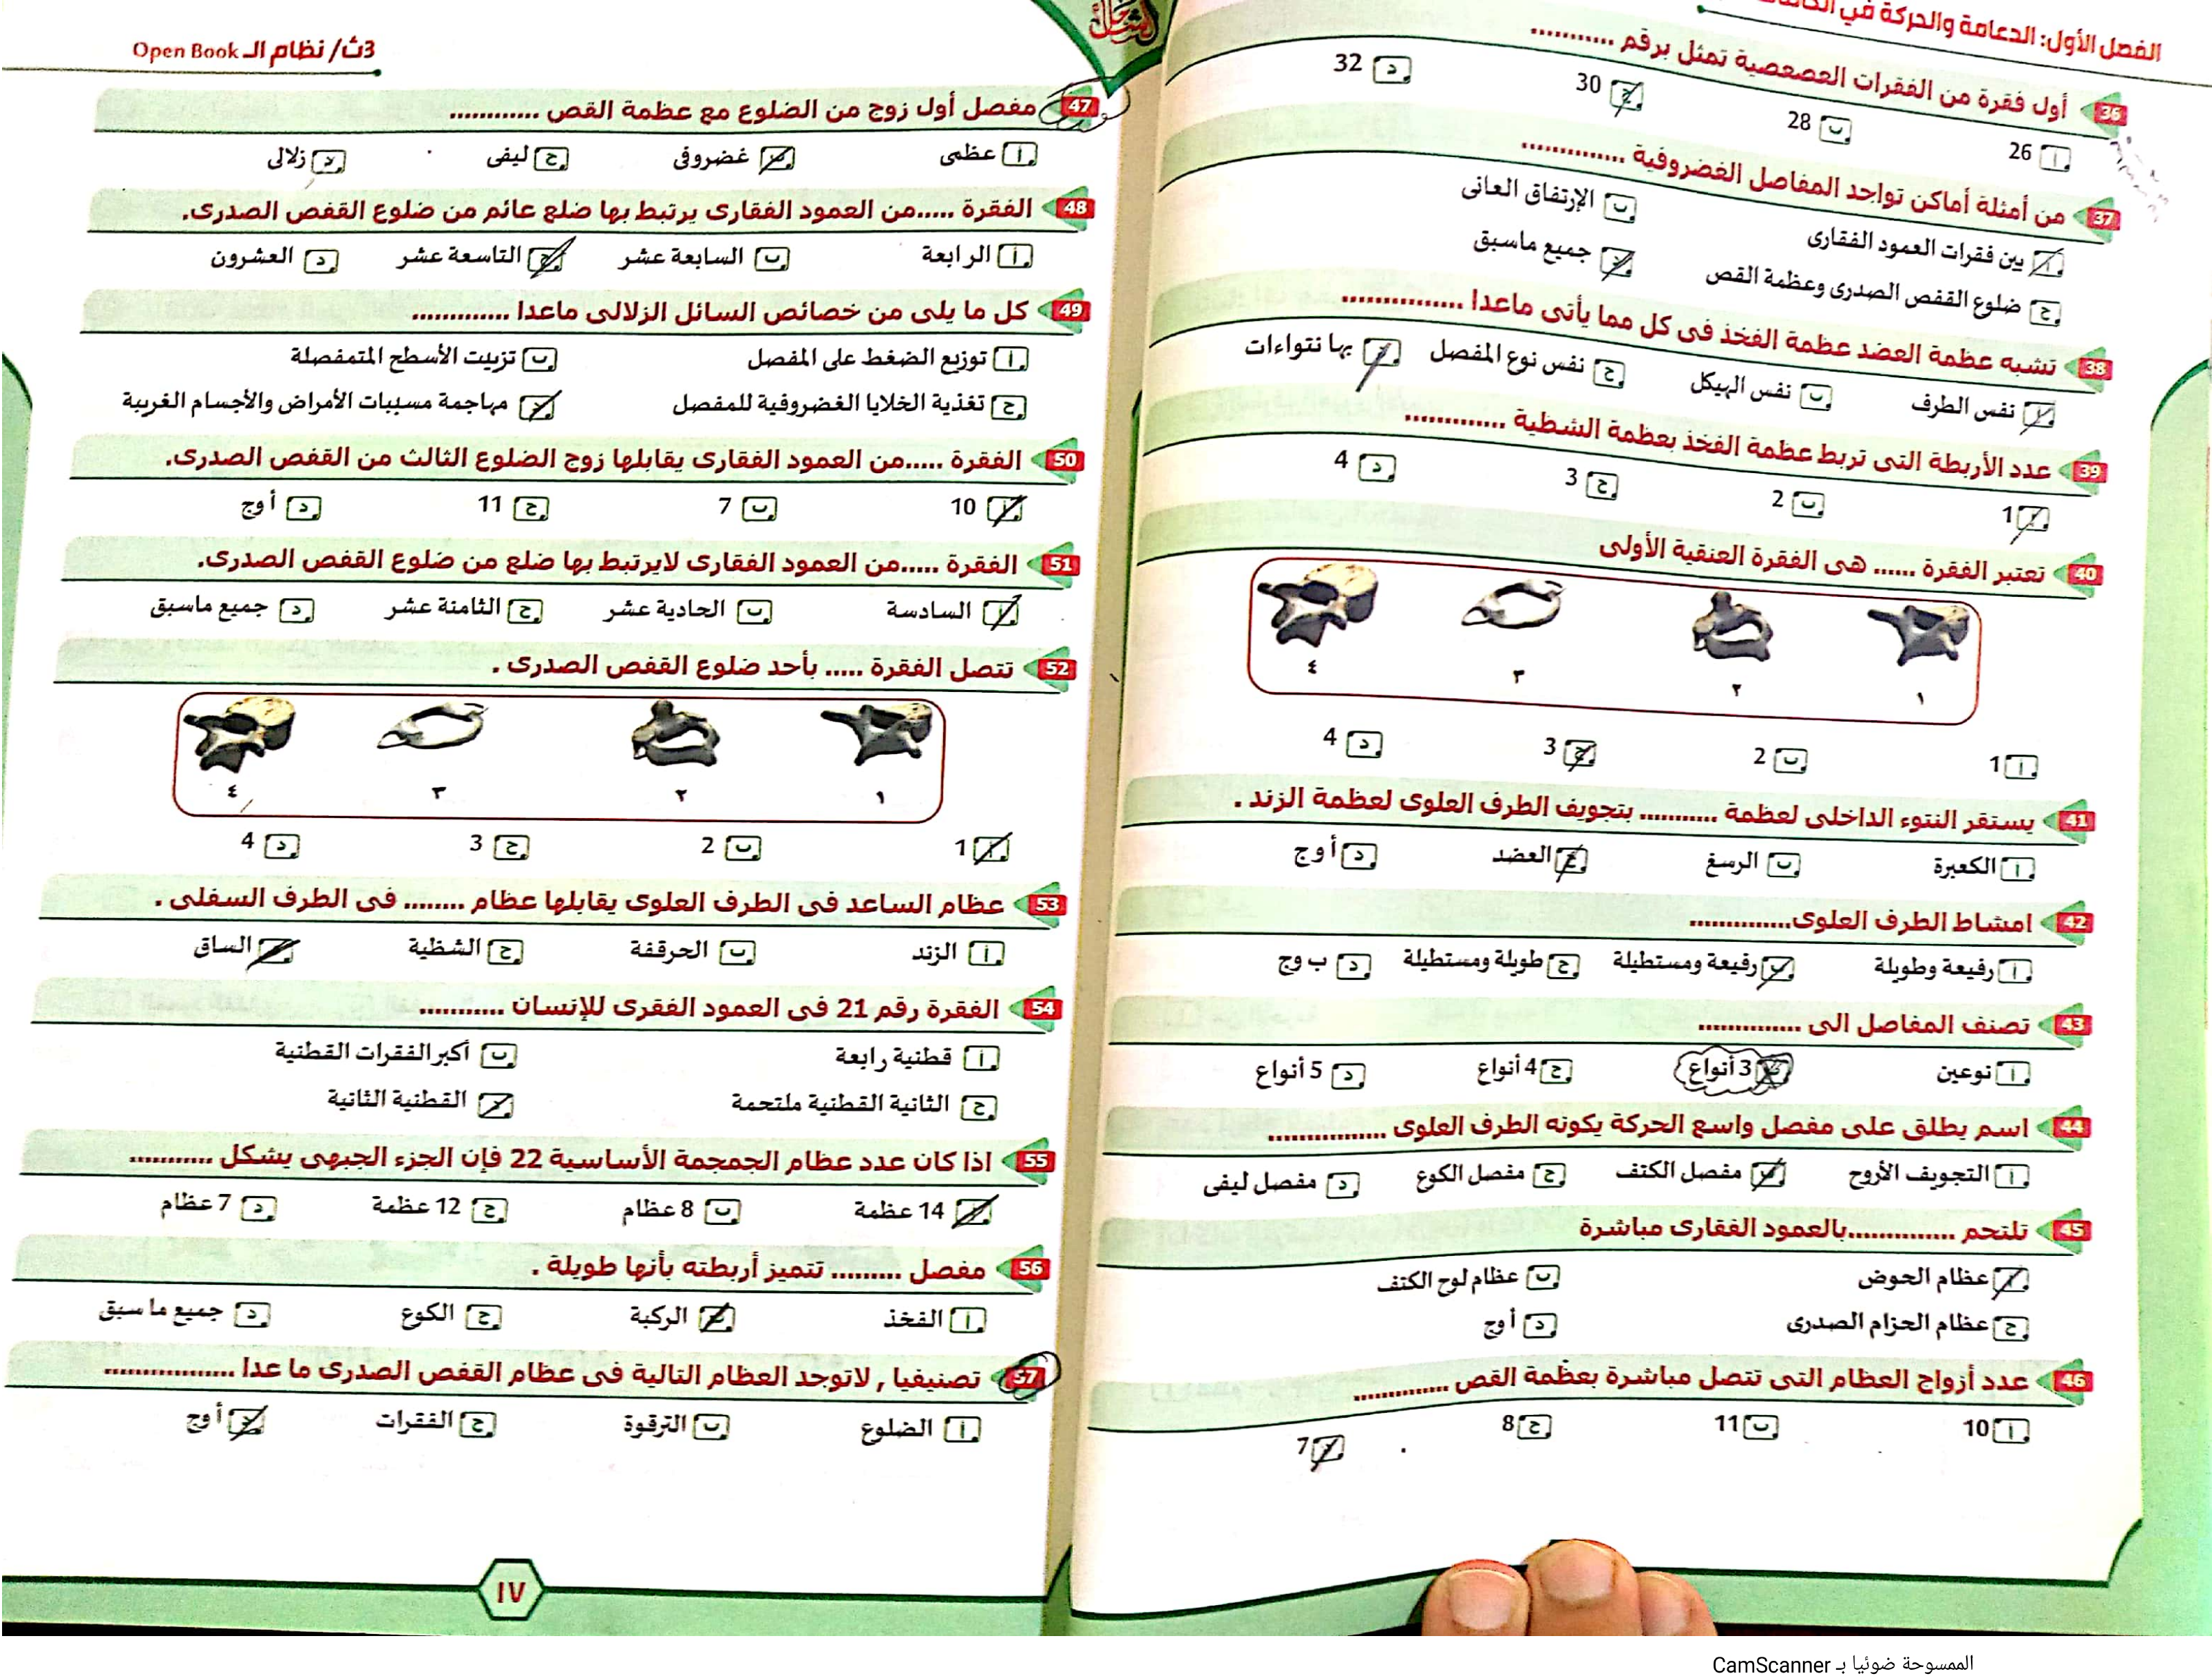 الفصل الأول: الدعامة والحركة في
36 أول فقرة من الفقرات العصعصية تمثل برقم ...........
أ 26 ب 28 ج 30 د 32
37 من أمثلة أماكن تواجد المفاصل الغضروفية ..............
أ بين فقرات العمود الفقارى ب الإرتفاق العانى
ج ضلوع القفص الصدرى وعظمة القص د جميع ماسبق
38 تشبه عظمة العضد عظمة الفخذ فى كل مما يأتى ماعدا ................
أ نفس الطرف ب نفس الهيكل ج نفس نوع المفصل د بها نتواءات
39 عدد الأربطة التى تربط عظمة الفخذ بعظمة الشظية .............
أ 1 ب 2 ج 3 د 4
40 تعتبر الفقرة ...... هى الفقرة العنقية الأولى
١ ٢ ٣ ٤
أ 1 ب 2 ج 3 د 4
41 يستقر النتوء الداخلى لعظمة ........... بتجويف الطرف العلوى لعظمة الزند .
أ الكعبرة ب الرسغ ج العضد د أ وج
42 امشاط الطرف العلوى..............
أ رفيعة وطويلة ب رفيعة ومستطيلة ج طويلة ومستطيلة د ب وج
43 تصنف المفاصل الى ..............
أ نوعين ب 3 أنواع ج 4 أنواع د 5 أنواع
44 اسم يطلق على مفصل واسع الحركة يكونه الطرف العلوى ................
أ التجويف الأروح ب مفصل الكتف ج مفصل الكوع د مفصل ليفى
45 تلتحم ..............بالعمود الفقارى مباشرة
أ عظام الحوض ب عظام لوح الكتف
ج عظام الحزام الصدرى د أ وج
46 عدد أزواج العظام التى تتصل مباشرة بعظمة القص .............
أ 10 ب 11 ج 8 د 7
3ث/ نظام الـ Open Book
47 مفصل أول زوج من الضلوع مع عظمة القص ............
أ عظمى ب غضروفى ج ليفى د زلالى
48 الفقرة .....من العمود الفقارى يرتبط بها ضلع عائم من ضلوع القفص الصدرى.
أ الرابعة ب السابعة عشر ج التاسعة عشر د العشرون
49 كل ما يلى من خصائص السائل الزلالى ماعدا .............
أ توزيع الضغط على المفصل ب تزييت الأسطح المتمفصلة
ج تغذية الخلايا الغضروفية للمفصل د مهاجمة مسببات الأمراض والأجسام الغريبة
50 الفقرة .....من العمود الفقارى يقابلها زوج الضلوع الثالث من القفص الصدرى.
أ 10 ب 7 ج 11 د أ وج
51 الفقرة .....من العمود الفقارى لايرتبط بها ضلع من ضلوع القفص الصدرى.
أ السادسة ب الحادية عشر ج الثامنة عشر د جميع ماسبق
52 تتصل الفقرة ..... بأحد ضلوع القفص الصدرى .
١ ٢ ٣ ٤
أ 1 ب 2 ج 3 د 4
53 عظام الساعد فى الطرف العلوى يقابلها عظام ........ فى الطرف السفلى .
أ الزند ب الحرقفة ج الشظية د الساق
54 الفقرة رقم 21 فى العمود الفقرى للإنسان ...........
أ قطنية رابعة ب أكبر الفقرات القطنية
ج الثانية القطنية ملتحمة د القطنية الثانية
55 اذا كان عدد عظام الجمجمة الأساسية 22 فإن الجزء الجبهى يشكل ...........
أ 14 عظمة ب 8 عظام ج 12 عظمة د 7 عظام
56 مفصل ......... تتميز أربطته بأنها طويلة .
أ الفخذ ب الركبة ج الكوع د جميع ما سبق
57 تصنيفيا , لاتوجد العظام التالية فى عظام القفص الصدرى ما عدا .................
أ الضلوع ب الترقوة ج الفقرات د أ وج
١٧
الممسوحة ضوئيا بـ CamScanner